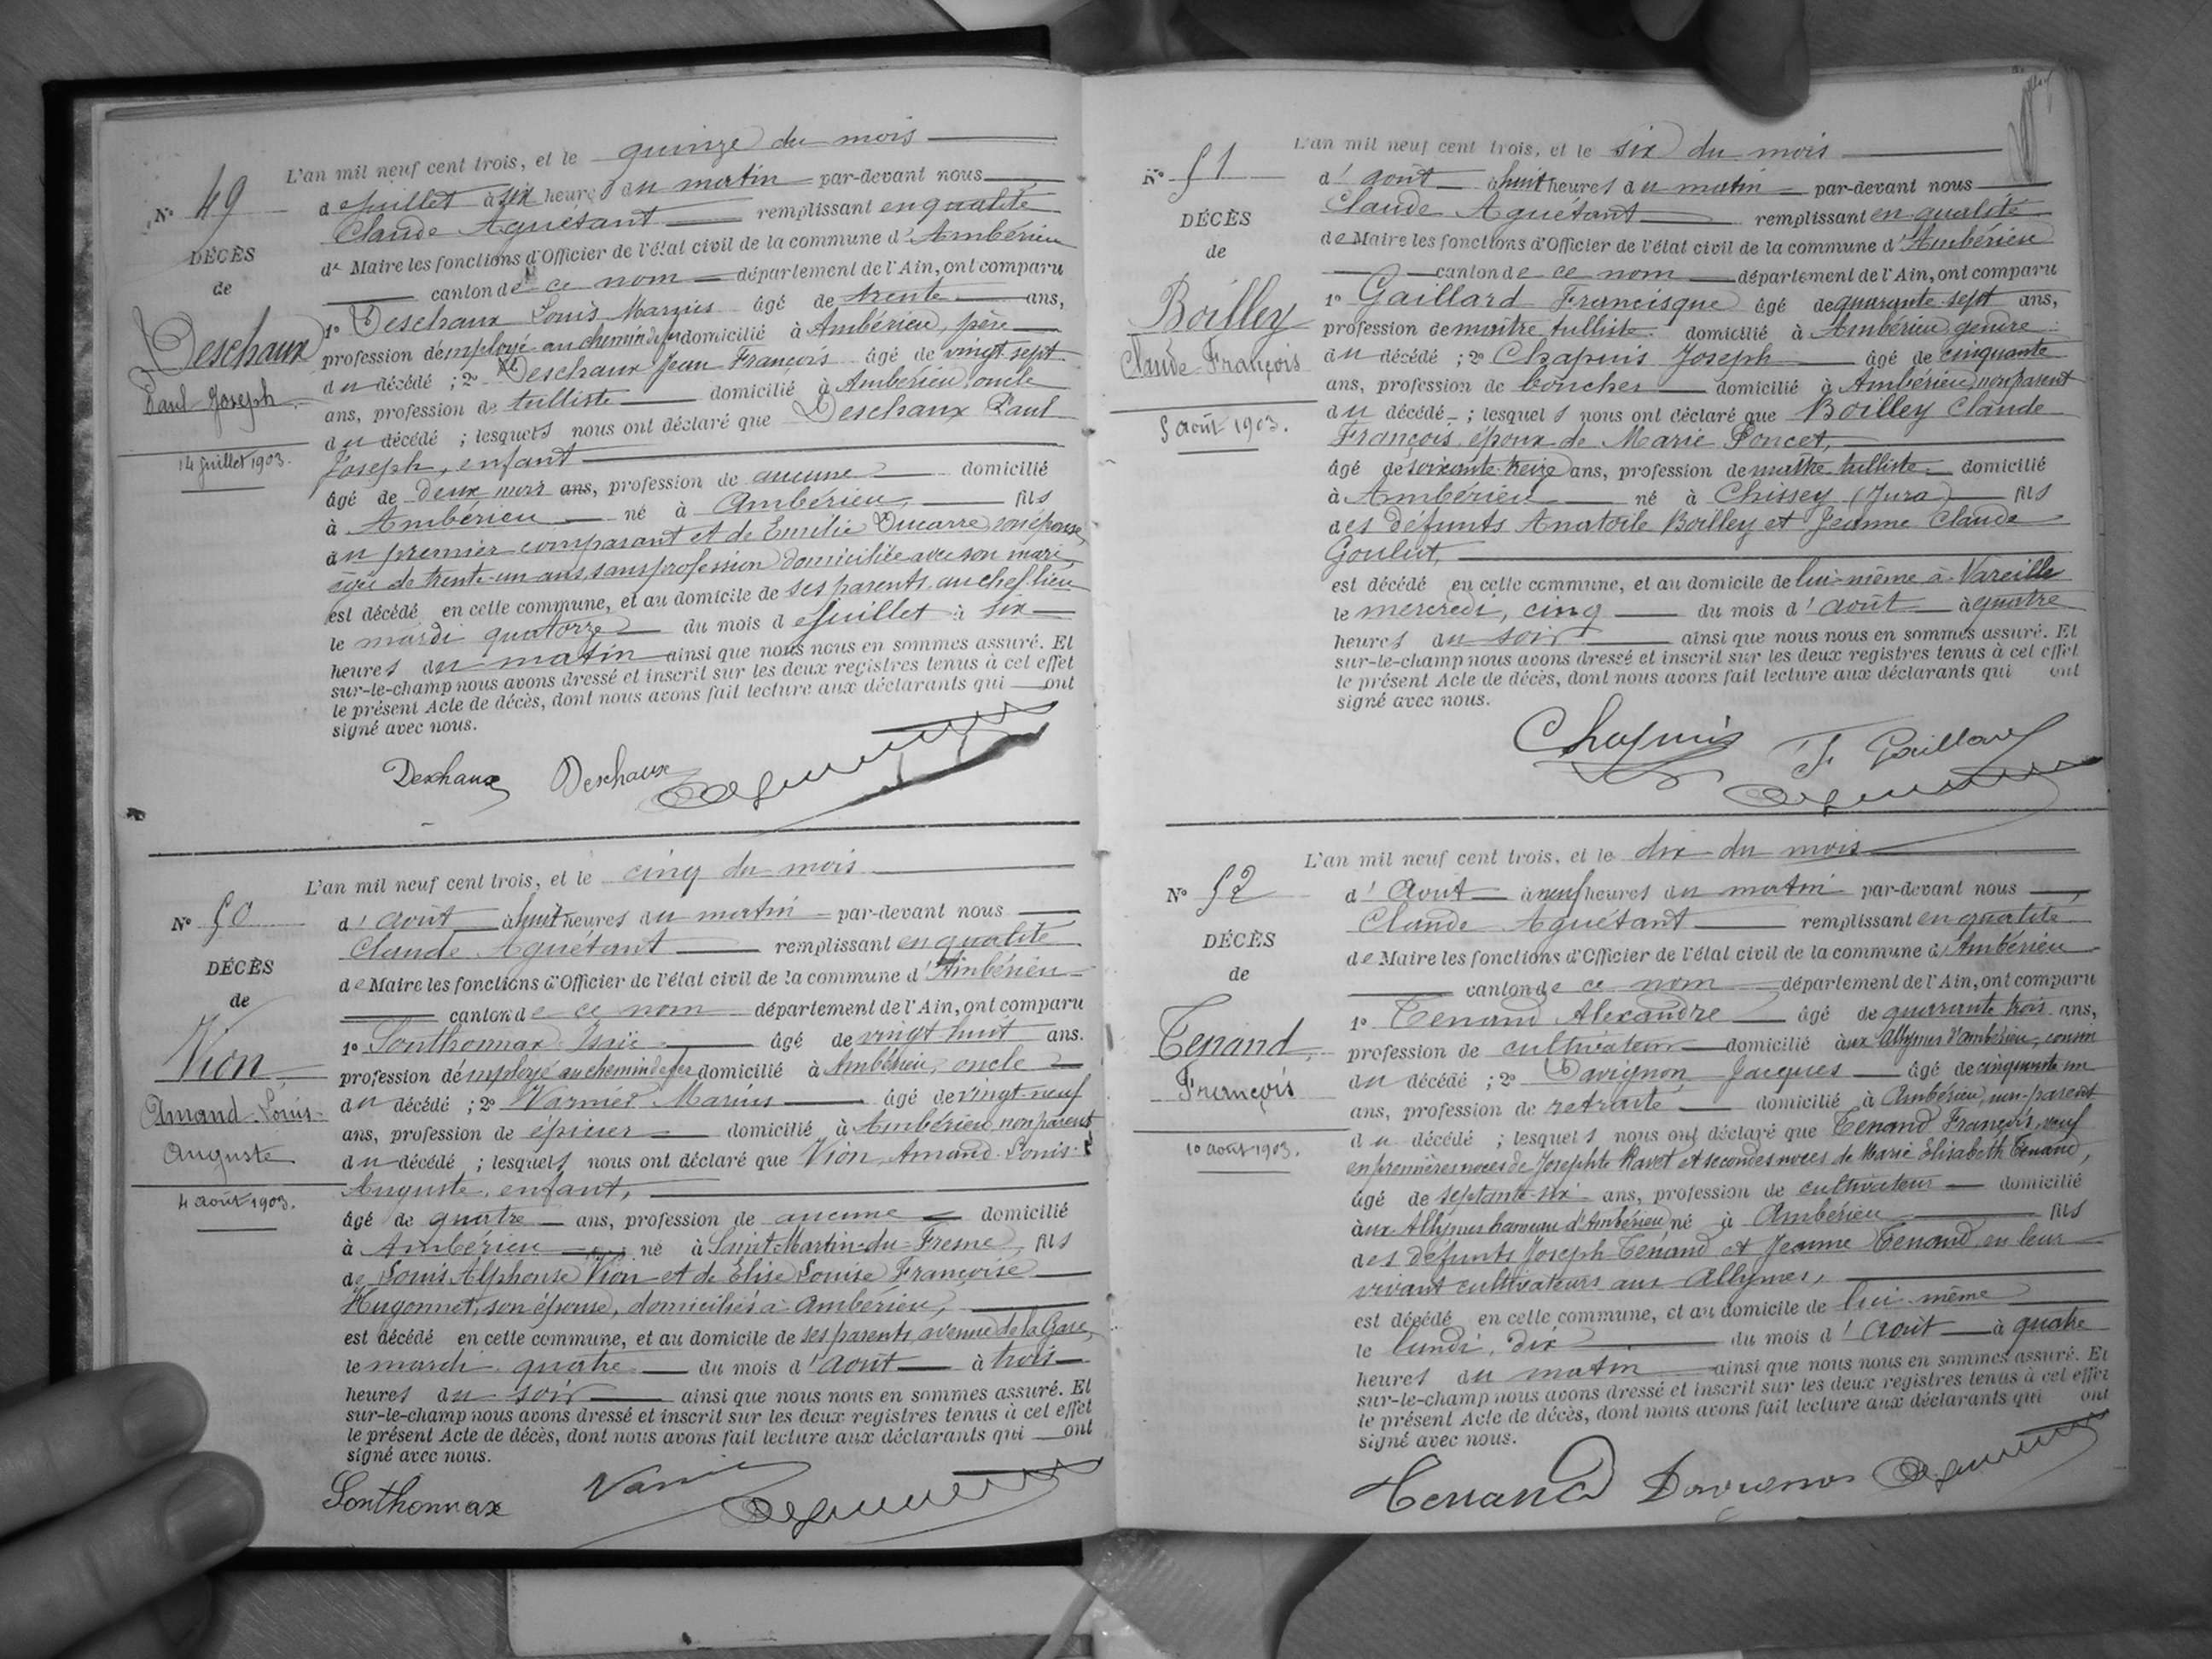 L'an mil neuf cent trois, et le quinze du mois
N° 49
de Juillet à six heures du matin par-devant nous
Claude Aguétant remplissant en qualité
DÉCÈS
de Maire les fonctions d'Officier de l'état civil de la commune d'Ambérieu
de
canton de ce nom département de l'Ain, ont comparu
Deschaux
Paul Joseph
14 Juillet 1903.
1° Deschaux Louis Marius âgé de trente ans,
profession d'employé au chemin de fer domicilié à Ambérieu, père
du décédé ; 2° Deschaux Jean François âgé de vingt sept
ans, profession de tulliste domicilié à Ambérieu, oncle
du décédé ; lesquels nous ont déclaré que Deschaux Paul
Joseph, enfant
âgé de deux mois ans, profession de aucune domicilié
à Ambérieu né à Ambérieu, fils
du premier comparant et de Emélie Ducarre son épouse,
âgée de trente-un ans, sans profession domiciliée avec son mari
est décédé en cette commune, et au domicile de ses parents au chef-lieu
le mardi quatorze du mois de Juillet à six
heures du matin ainsi que nous nous en sommes assuré. Et
sur-le-champ nous avons dressé et inscrit sur les deux registres tenus à cet effet
le présent Acte de décès, dont nous avons fait lecture aux déclarants qui ont
signé avec nous.
Deschaux Deschaux
L'an mil neuf cent trois, et le cinq du mois
N° 50
d'août à huit heures du matin par-devant nous
Claude Aguétant remplissant en qualité
DÉCÈS
de Maire les fonctions d'Officier de l'état civil de la commune d'Ambérieu
de
canton de ce nom département de l'Ain, ont comparu
Vion
Amand-Louis-
Auguste
4 août 1903.
1° Sonthonnax Isaïe âgé de vingt huit ans.
profession d'employé au chemin de fer domicilié à Ambérieu, oncle
du décédé ; 2° Marius âgé de vingt-neuf
ans, profession de épicier domicilié à Ambérieu, non parent
du décédé ; lesquels nous ont déclaré que Vion, Amand-Louis-
Auguste, enfant,
âgé de quatre ans, profession de aucune domicilié
à Ambérieu né à Saint-Martin-du-Fresne, fils
de Louis Alphonse Vion et de Elise Louise Françoise
Hugonnet, son épouse, domiciliés à Ambérieu,
est décédé en cette commune, et au domicile de ses parents, avenue de la Gare,
le mardi quatre du mois d'août à trois
heures du soir ainsi que nous nous en sommes assuré. Et
sur-le-champ nous avons dressé et inscrit sur les deux registres tenus à cet effet
le présent Acte de décès, dont nous avons fait lecture aux déclarants qui ont
signé avec nous.
Sonthonnax
L'an mil neuf cent trois, et le six du mois
N° 51
d'août à huit heures du matin par-devant nous
Claude Aguétant remplissant en qualité
DÉCÈS
de Maire les fonctions d'Officier de l'état civil de la commune d'Ambérieu
de
canton de ce nom département de l'Ain, ont comparu
Boilley
Claude-François
5 août 1903.
1° Gaillard Francisque âgé de quarante-sept ans,
profession de maître tulliste domicilié à Ambérieu gendre
du décédé ; 2° Chapuis Joseph âgé de cinquante
ans, profession de boucher domicilié à Ambérieu non parent
du décédé ; lesquels nous ont déclaré que Boilley Claude
François, époux de Marie Poncet,
âgé de soixante-treize ans, profession de maître tulliste domicilié
à Ambérieu né à Chissey (Jura) fils
des défunts Anatoile Boilley et Jeanne Claude
Goulut,
est décédé en cette commune, et au domicile de lui-même à Vareille
le mercredi, cinq du mois d'août à quatre
heures du soir ainsi que nous nous en sommes assuré. Et
sur-le-champ nous avons dressé et inscrit sur les deux registres tenus à cet effet
le présent Acte de décès, dont nous avons fait lecture aux déclarants qui ont
signé avec nous.
Chapuis F. Gaillard
L'an mil neuf cent trois, et le dix du mois
N° 52
d'Août à neuf heures du matin par-devant nous
Claude Aguétant remplissant en qualité
DÉCÈS
de Maire les fonctions d'Officier de l'état civil de la commune d'Ambérieu
de
canton de ce nom département de l'Ain, ont comparu
Tenand,
François
10 août 1903.
1° Tenand Alexandre âgé de quarante trois ans,
profession de cultivateur domicilié aux Allymes d'Ambérieu, cousin
du décédé ; 2° Davignon Jacques âgé de cinquante un
ans, profession de retraité domicilié à Ambérieu, non-parent
du décédé ; lesquels nous ont déclaré que Tenand François, veuf
en premières noces de Josephte Ravet et secondes noces de Marie Elisabeth Tenand,
âgé de septante-six ans, profession de cultivateur domicilié
aux Allymes hameau d'Ambérieu né à Ambérieu fils
des défunts Joseph Tenand et Jeanne Tenand en leur
vivant cultivateurs aux Allymes,
est décédé en cette commune, et au domicile de lui-même
le lundi, dix du mois d'Août à quatre
heures du matin ainsi que nous nous en sommes assuré. Et
sur-le-champ nous avons dressé et inscrit sur les deux registres tenus à cet effet
le présent Acte de décès, dont nous avons fait lecture aux déclarants qui ont
signé avec nous.
Tenand